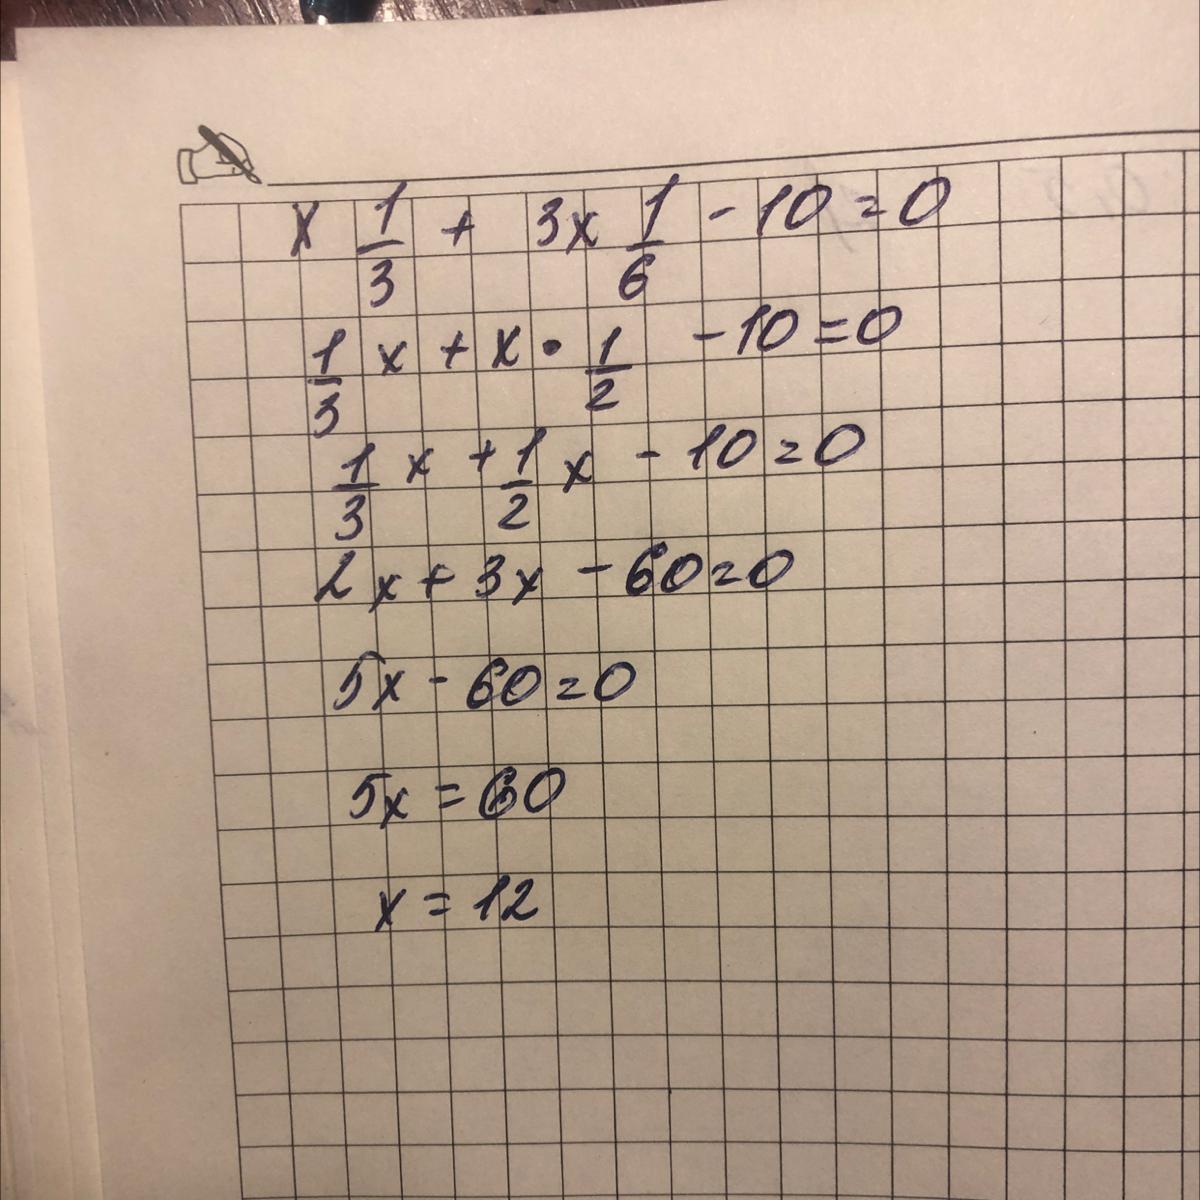 x 1/3 + 3x 1/6 - 10 = 0
1/3 x + x · 1/2 - 10 = 0
1/3 x + 1/2 x - 10 = 0
2x + 3x - 60 = 0
5x - 60 = 0
5x = 60
x = 12